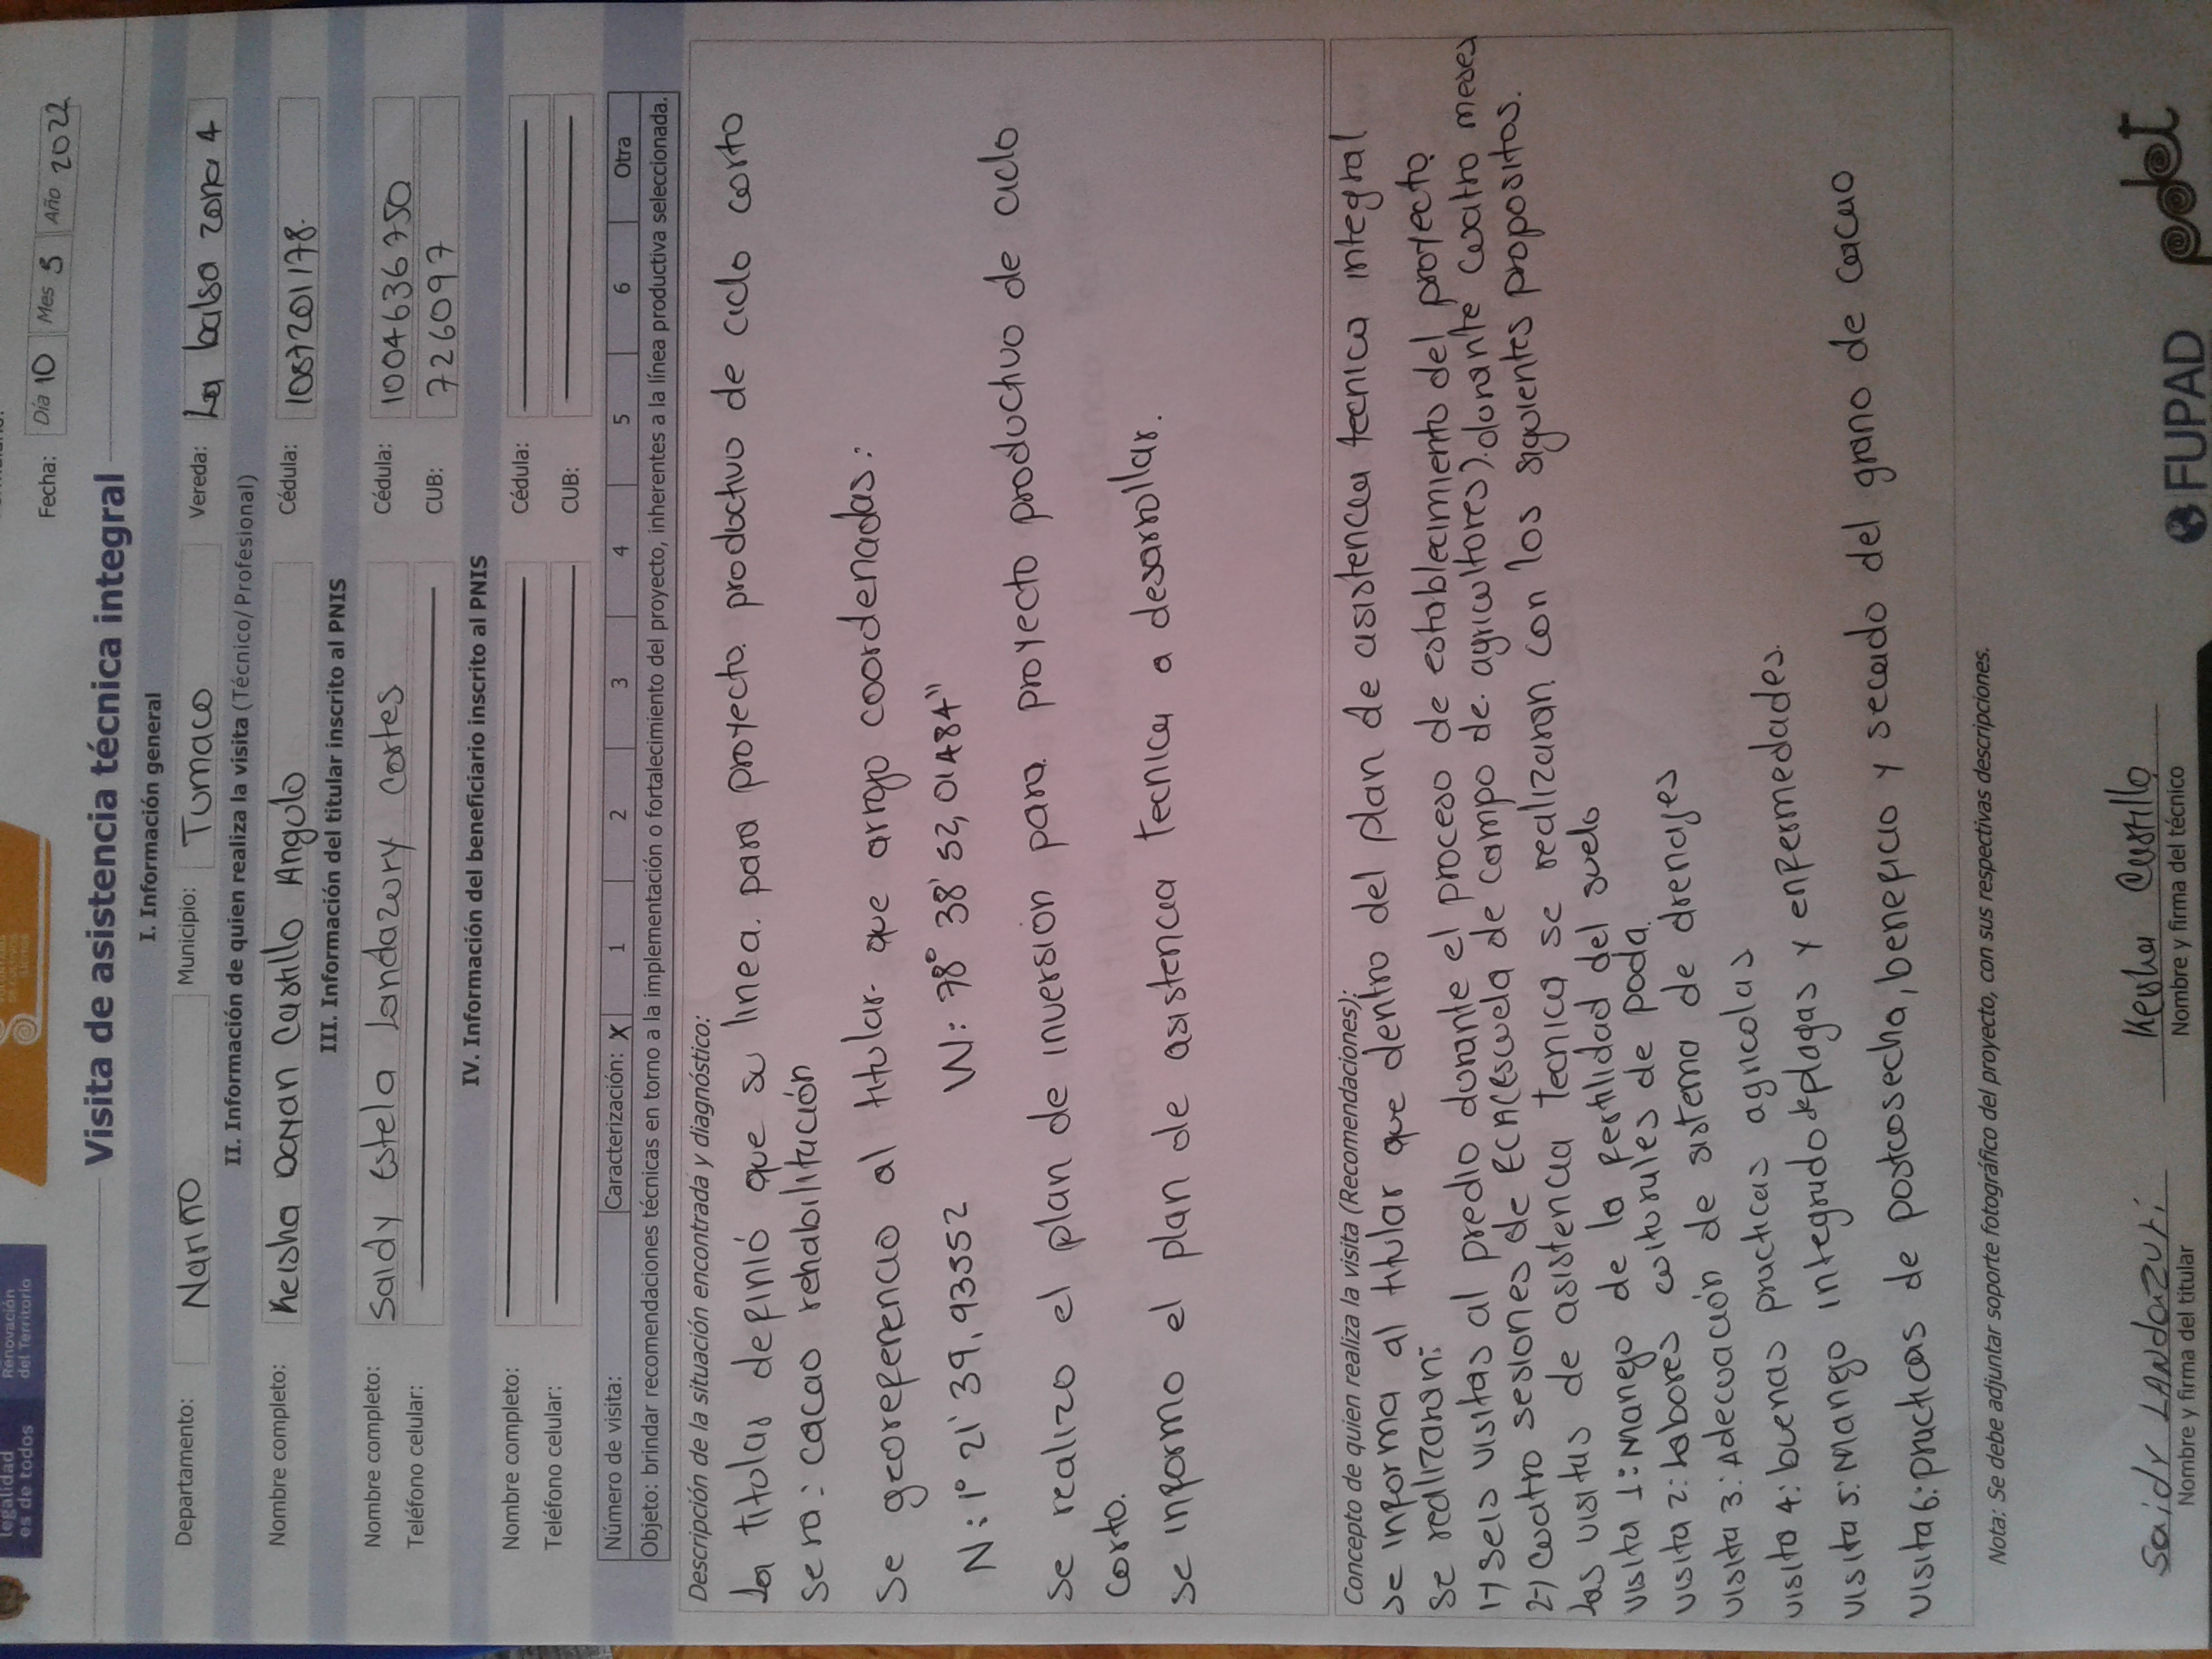 legalidad
es de todos
Renovación
del Territorio
Fecha: Día 10 Mes 5 Año 2022
Visita de asistencia técnica integral
I. Información general
Departamento: Nariño Municipio: Tumaco Vereda: La balsa zona 4
II. Información de quien realiza la visita (Técnico/Profesional)
Nombre completo: Keisha Castillo Angulo Cédula: 1087201178.
III. Información del titular inscrito al PNIS
Nombre completo: Saidy Estela Landazury Cortes Cédula: 1004636750
Teléfono celular: CUB: 726097
IV. Información del beneficiario inscrito al PNIS
Nombre completo: Cédula:
Teléfono celular: CUB:
Número de visita: Caracterización: X 1 2 3 4 5 6 Otra
Objeto: brindar recomendaciones técnicas en torno a la implementación o fortalecimiento del proyecto, inherentes a la línea productiva seleccionada.
Descripción de la situación encontrada y diagnóstico:
La titular definió que su linea. para proyecto. productivo de ciclo corto
sera: cacao rehabilitación
Se georeferencio al titular. que arrojo coordenadas:
N: 1° 21' 39.93552 W: 78° 38' 52,01484"
Se realizo el plan de inversion para. proyecto productivo de ciclo
corto.
se informo el plan de asistencia tecnica a desarrollar.
Concepto de quien realiza la visita (Recomendaciones):
se informa al titular que dentro del plan de asistencia tecnica integral
se realizaran:
1-) seis visitas al predio durante el proceso de establecimiento del proyecto.
2-) cuatro sesiones de ECA(Escuela de campo de. agricultores).durante cuatro meses
las visitas de asistencia tecnica se realizaran con los siguientes propositos.
visita 1: Manejo de la fertilidad del suelo
visita 2: labores culturales de poda.
visita 3: Adecuación de sistema de drenajes
visita 4: buenas practicas agricolas
visita 5: Manejo integrado de plagas y enfermedades.
visita 6: practicas de postcosecha, beneficio y secado del grano de cacao
Nota: Se debe adjuntar soporte fotográfico del proyecto, con sus respectivas descripciones.
Saidy LANdazuri Keisha Castillo
Nombre y firma del titular Nombre y firma del técnico
FUPAD pdet